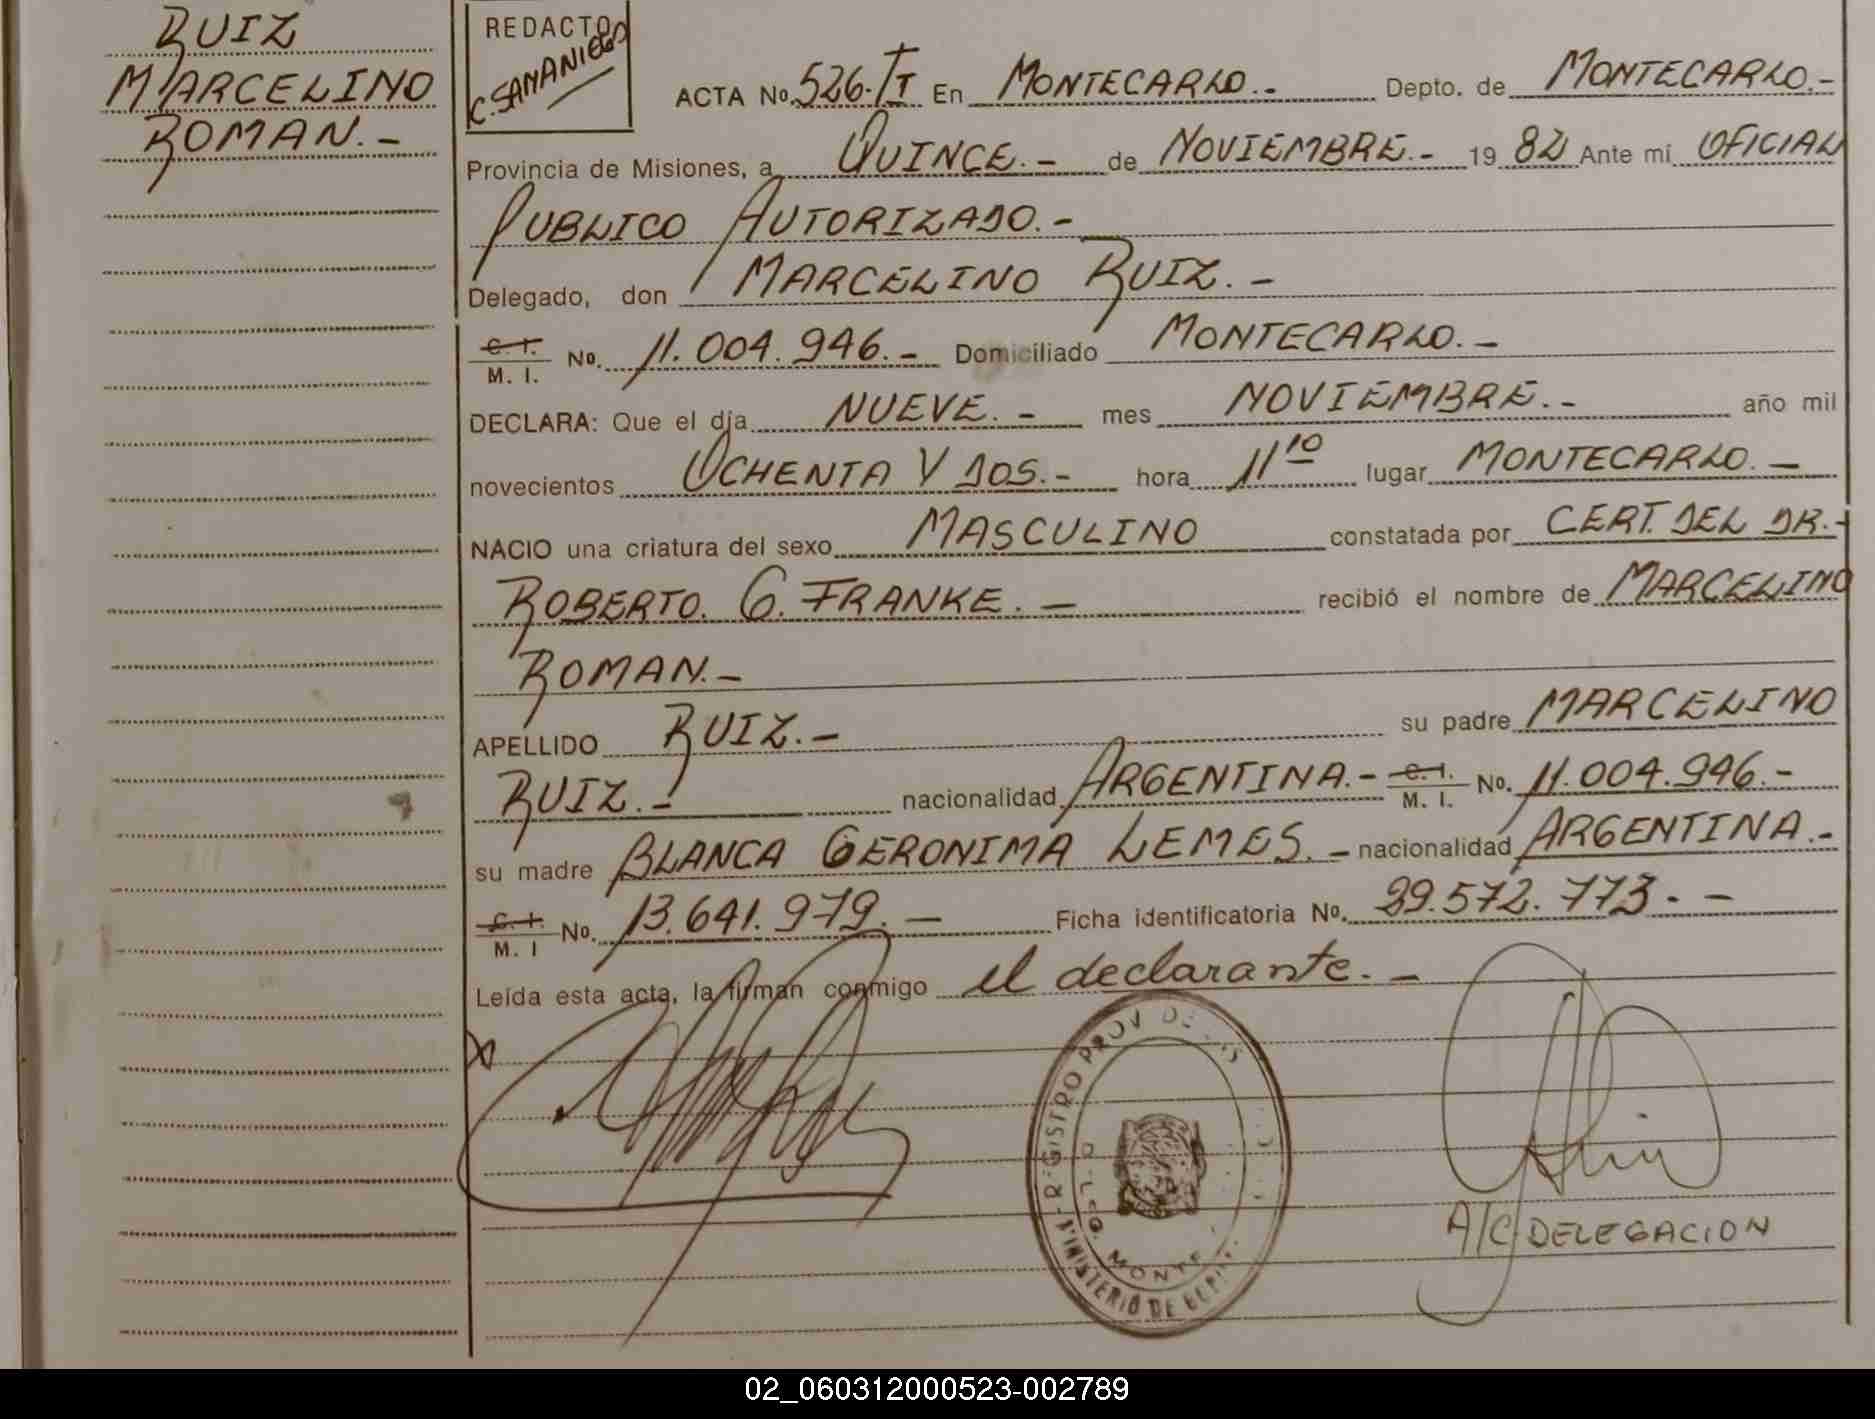 RUIZ
MARCELINO
ROMAN.-
REDACTO
C. SAMANIEGO
ACTA No. 526-TI En MONTECARLO.- Depto. de MONTECARLO.-
Provincia de Misiones, a QUINCE.- de NOVIEMBRE.- 19 82 Ante mí OFICIAL
PUBLICO AUTORIZADO.-
Delegado, don MARCELINO RUIZ.-
C. I. / M. I. No. 11.004.946.- Domiciliado MONTECARLO.-
DECLARA: Que el día NUEVE.- mes NOVIEMBRE.- año mil
novecientos OCHENTA Y DOS.- hora 11 10 lugar MONTECARLO.-
NACIO una criatura del sexo MASCULINO constatada por CERT. DEL DR.-
ROBERTO. G. FRANKE.- recibió el nombre de MARCELINO
ROMAN.-
APELLIDO RUIZ.- su padre MARCELINO
RUIZ.- nacionalidad ARGENTINA.- C. I. / M. I. No. 11.004.946.-
su madre BLANCA GERONIMA LEMES.- nacionalidad ARGENTINA.-
C. I. / M. I No. 13.641.979.- Ficha identificatoria No. 29.572.773.-
Leída esta acta, la firman conmigo el declarante.-
REGISTRO PROV. DE
MINISTERIO DE
MONTE
A/C DELEGACION
02_060312000523-002789